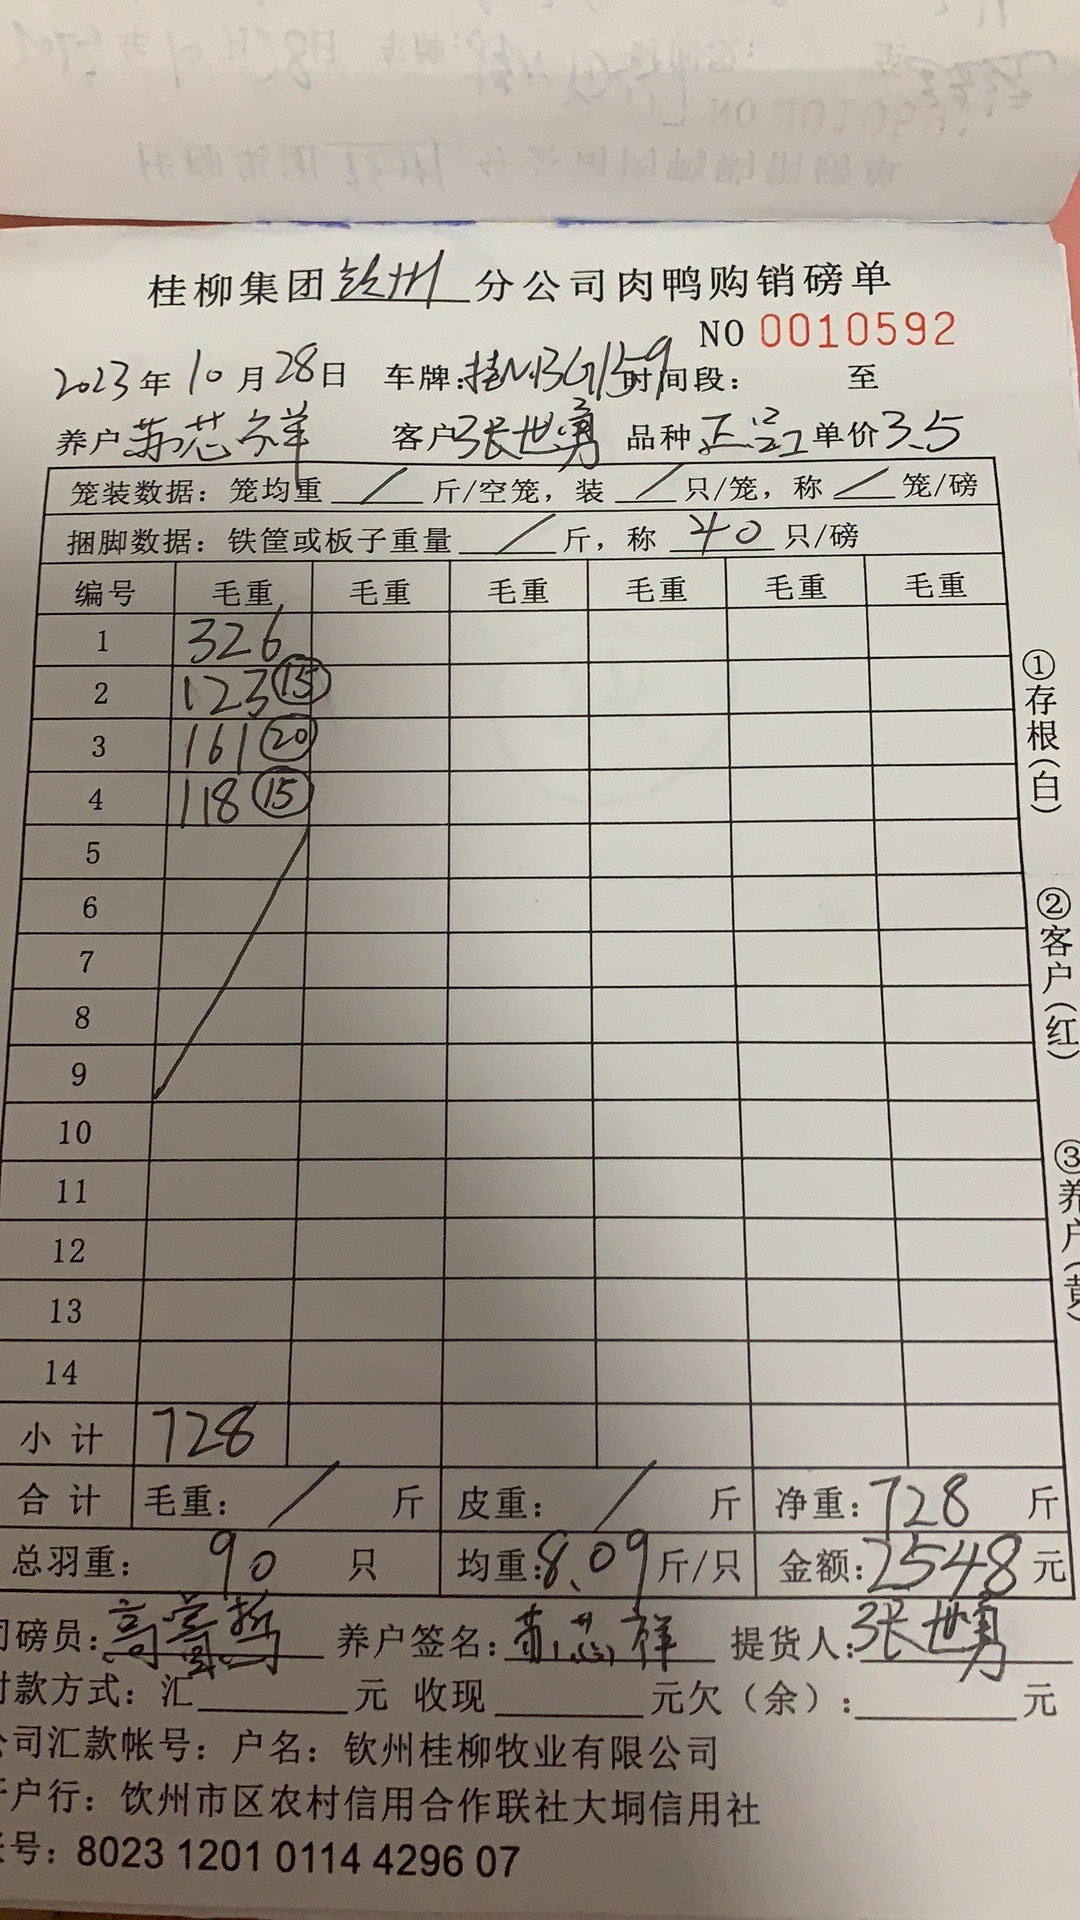 桂柳集团钦州分公司肉鸭购销磅单
NO 0010592
2023年10月28日 车牌:桂N·BG159 时间段: 至
养户苏芯祥 客户张世勇 品种正品 单价3.5
笼装数据：笼均重 / 斤/空笼，装 / 只/笼，称 / 笼/磅
捆脚数据：铁筐或板子重量 / 斤，称 40 只/磅
编号 毛重 毛重 毛重 毛重 毛重 毛重
1 326
2 123 ⑮
3 161 ⑳
4 118 ⑮
5
6
7
8
9
10
11
12
13
14
小计 728
合计 毛重： / 斤 皮重： / 斤 净重：728 斤
总羽重： 90 只 均重:8.09斤/只 金额:2548元
司磅员: 养户签名:苏芯祥 提货人:张世勇
付款方式：汇 元 收现 元欠（余）: 元
公司汇款帐号：户名：钦州桂柳牧业有限公司
开户行：钦州市区农村信用合作联社大垌信用社
帐号：8023 1201 0114 4296 07
①存根(白)
②客户(红)
③养户(黄)